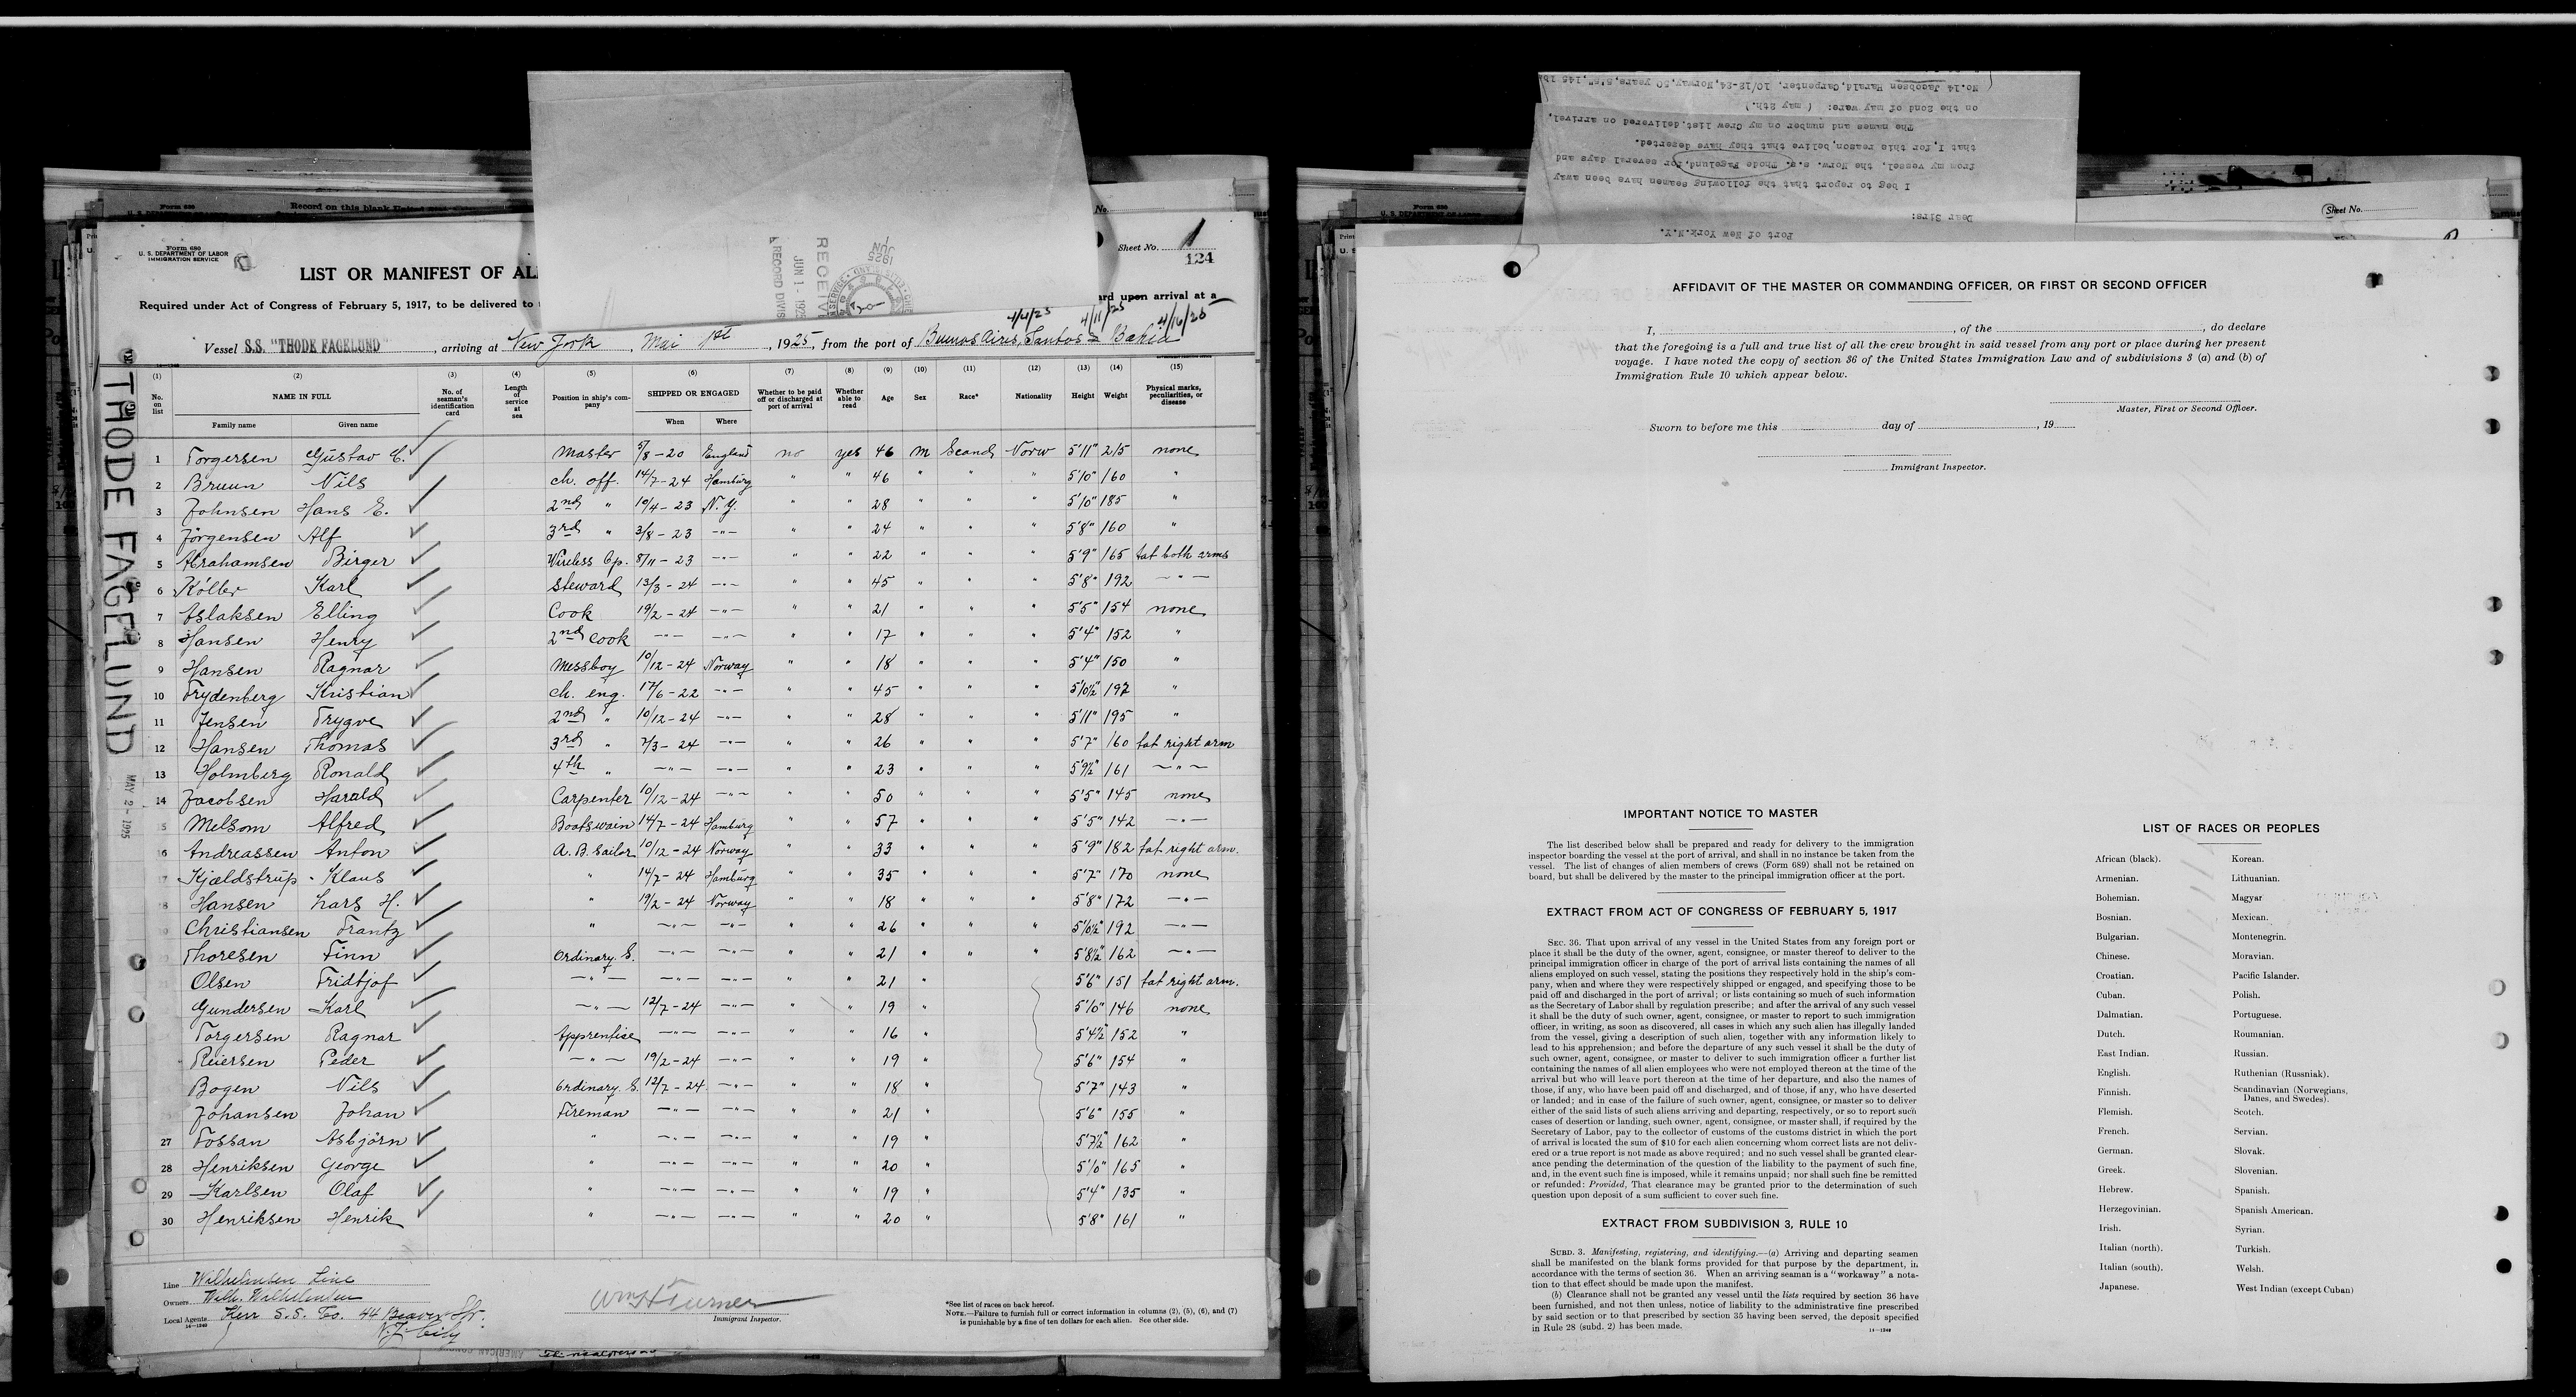 Form 680
U. S. DEPARTMENT OF LABOR
IMMIGRATION SERVICE
Record on this blank United
No.
Sheet No. 1
124
LIST OR MANIFEST OF AL
Required under Act of Congress of February 5, 1917, to be delivered to
ard upon arrival at a
RECEIV
JUN 1 - 1925
RECORD DIVIS
4/4/25 4/11/25 4/16/25
Vessel S.S. "THODE FAGELUND", arriving at New York, Mai 1st, 1925, from the port of Buenos Aires, Santos & Bahia
THODE FAGELUND
MAY 2 - 1925
(1) (2) (3) (4) (5) (6) (7) (8) (9) (10) (11) (12) (13) (14) (15)
No. on list
NAME IN FULL
Family name Given name
No. of seaman's identification card
Length of service at sea
Position in ship's company
SHIPPED OR ENGAGED
When Where
Whether to be paid off or discharged at port of arrival
Whether able to read
Age Sex Race* Nationality Height Weight
Physical marks, peculiarities, or disease
1 Torgersen Gustav C. Master 5/8-20 England no yes 46 m Scand Norw 5'11" 215 none
2 Bruun Nils ch. off. 14/7-24 Hamburg " " 46 " " " 5'10" 160 "
3 Johnsen Hans E. 2nd " 10/4-23 N.Y. " " 28 " " " 5'10" 185 "
4 Jörgensen Alf 3rd " 3/8-23 -"- " " 24 " " " 5'8" 160 "
5 Abrahamsen Birger Wireless Op. 8/11-23 -"- " " 22 " " " 5'9" 165 tat both arms
6 Köller Karl Steward 13/3-24 -"- " " 45 " " " 5'8" 192 -"-
7 Aslaksen Elling Cook 19/2-24 -"- " " 21 " " " 5'5" 154 none
8 Hansen Henry 2nd cook -"- -"- " " 17 " " " 5'4" 152 "
9 Hansen Ragnar Messboy 10/12-24 Norway " " 18 " " " 5'4" 150 "
10 Frydenberg Kristian ch. eng. 17/6-22 -"- " " 45 " " " 5'10½" 197 "
11 Jensen Trygve 2nd " 10/12-24 -"- " " 28 " " " 5'11" 195 "
12 Hansen Thomas 3rd " 7/3-24 -"- " " 26 " " " 5'7" 160 tat right arm
13 Holmberg Ronald 4th " -"- -"- " " 23 " " " 5'9½" 161 -"-
14 Jacobsen Harald Carpenter 10/12-24 -"- " " 50 " " " 5'5" 145 none
15 Melsom Alfred Boatswain 14/7-24 Hamburg " " 57 " " " 5'5" 142 -"-
16 Andreassen Anton A.B. Sailor 10/12-24 Norway " " 33 " " " 5'9" 182 tat right arm.
17 Kjældstrup Klaus " 14/7-24 Hamburg " " 35 " " " 5'7" 170 none
18 Hansen Lars H. " 19/2-24 Norway " " 18 " " " 5'8" 172 -"-
Christiansen Frantz " -"- -"- " " 26 " " " 5'10½" 192 -"-
Thoresen Finn Ordinary S. -"- -"- " " 21 " " " 5'8½" 162 -"-
Olsen Fridtjof -"- -"- -"- " " 21 " 5'6" 151 tat right arm.
Gundersen Karl -"- 12/7-24 -"- " " 19 " 5'10" 146 none
Torgersen Ragnar Apprentise -"- -"- " " 16 " 5'4½" 152 "
Reiersen Peder -"- 19/2-24 -"- " " 19 " 5'6" 154 "
Bogen Nils Ordinary S. 12/7-24 -"- " " 18 " 5'7" 143 "
Johansen Johan Fireman -"- -"- " " 21 " 5'6" 155 "
27 Fossan Asbjörn " -"- -"- " " 19 " 5'7½" 162 "
28 Henriksen George " -"- -"- " " 20 " 5'10" 165 "
29 Karlsen Olaf " -"- -"- " " 19 " 5'4" 135 "
30 Henriksen Henrik " -"- -"- " " 20 " 5'8" 161 "
Line Wilhelmsen Line
Owners Wilh. Wilhelmsen
Local Agents Kerr S.S. Co. 44 Beaver Str.
N.Y. City
14—1240
Wm H Turner
Immigrant Inspector.
*See list of races on back hereof.
NOTE.—Failure to furnish full or correct information in columns (2), (5), (6), and (7)
is punishable by a fine of ten dollars for each alien. See other side.
Port of New York.N.Y.
Dear Sirs:
I beg to report that the following seamen have been away
from my vessel, the Norw. s.s. Thode Fagelund, for several days and
that I, for this reason, belive that they have deserted.
The names and number on my Crew list, delivered on arrival,
on the 2ond of may were: ( may 2th.)
No.14 Jacobsen Harald, Carpenter, 10/12-24, Norway, 50 years, 5'5", 145 lb
Form 680
Sheet No.
AFFIDAVIT OF THE MASTER OR COMMANDING OFFICER, OR FIRST OR SECOND OFFICER
I, , of the , do declare
that the foregoing is a full and true list of all the crew brought in said vessel from any port or place during her present
voyage. I have noted the copy of section 36 of the United States Immigration Law and of subdivisions 3 (a) and (b) of
Immigration Rule 10 which appear below.
Master, First or Second Officer.
Sworn to before me this day of , 19
Immigrant Inspector.
IMPORTANT NOTICE TO MASTER
The list described below shall be prepared and ready for delivery to the immigration
inspector boarding the vessel at the port of arrival, and shall in no instance be taken from the
vessel. The list of changes of alien members of crews (Form 689) shall not be retained on
board, but shall be delivered by the master to the principal immigration officer at the port.
EXTRACT FROM ACT OF CONGRESS OF FEBRUARY 5, 1917
SEC. 36. That upon arrival of any vessel in the United States from any foreign port or
place it shall be the duty of the owner, agent, consignee, or master thereof to deliver to the
principal immigration officer in charge of the port of arrival lists containing the names of all
aliens employed on such vessel, stating the positions they respectively hold in the ship's com-
pany, when and where they were respectively shipped or engaged, and specifying those to be
paid off and discharged in the port of arrival; or lists containing so much of such information
as the Secretary of Labor shall by regulation prescribe; and after the arrival of any such vessel
it shall be the duty of such owner, agent, consignee, or master to report to such immigration
officer, in writing, as soon as discovered, all cases in which any such alien has illegally landed
from the vessel, giving a description of such alien, together with any information likely to
lead to his apprehension; and before the departure of any such vessel it shall be the duty of
such owner, agent, consignee, or master to deliver to such immigration officer a further list
containing the names of all alien employees who were not employed thereon at the time of the
arrival but who will leave port thereon at the time of her departure, and also the names of
those, if any, who have been paid off and discharged, and of those, if any, who have deserted
or landed; and in case of the failure of such owner, agent, consignee, or master so to deliver
either of the said lists of such aliens arriving and departing, respectively, or so to report such
cases of desertion or landing, such owner, agent, consignee, or master shall, if required by the
Secretary of Labor, pay to the collector of customs of the customs district in which the port
of arrival is located the sum of $10 for each alien concerning whom correct lists are not deliv-
ered or a true report is not made as above required; and no such vessel shall be granted clear-
ance pending the determination of the question of the liability to the payment of such fine,
and, in the event such fine is imposed, while it remains unpaid; nor shall such fine be remitted
or refunded: Provided, That clearance may be granted prior to the determination of such
question upon deposit of a sum sufficient to cover such fine.
EXTRACT FROM SUBDIVISION 3, RULE 10
SUBD. 3. Manifesting, registering, and identifying.—(a) Arriving and departing seamen
shall be manifested on the blank forms provided for that purpose by the department, in
accordance with the terms of section 36. When an arriving seaman is a "workaway" a nota-
tion to that effect should be made upon the manifest.
(b) Clearance shall not be granted any vessel until the lists required by section 36 have
been furnished, and not then unless, notice of liability to the administrative fine prescribed
by said section or to that prescribed by section 35 having been served, the deposit specified
in Rule 28 (subd. 2) has been made.
14—1240
LIST OF RACES OR PEOPLES
African (black).
Armenian.
Bohemian.
Bosnian.
Bulgarian.
Chinese.
Croatian.
Cuban.
Dalmatian.
Dutch.
East Indian.
English.
Finnish.
Flemish.
French.
German.
Greek.
Hebrew.
Herzegovinian.
Irish.
Italian (north).
Italian (south).
Japanese.
Korean.
Lithuanian.
Magyar
Mexican.
Montenegrin.
Moravian.
Pacific Islander.
Polish.
Portuguese.
Roumanian.
Russian.
Ruthenian (Russniak).
Scandinavian (Norwegians,
Danes, and Swedes).
Scotch.
Servian.
Slovak.
Slovenian.
Spanish.
Spanish American.
Syrian.
Turkish.
Welsh.
West Indian (except Cuban)